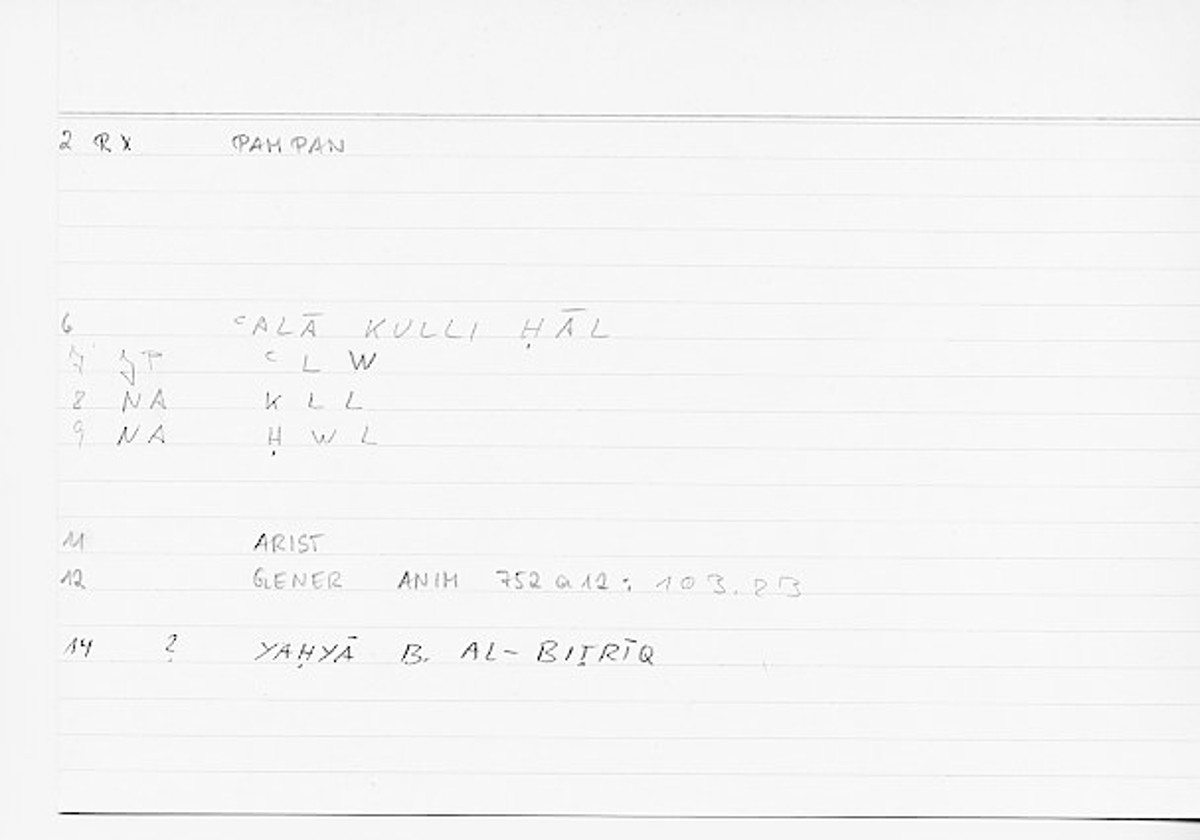 2 RX PAMPAN
6 ᶜALĀ KULLI ḤĀL
7 JP ᶜ L W
8 NA K L L
9 NA Ḥ W L
11 ARIST
12 GENER ANIM 752a12: 103.23
14 ? YAḤYĀ B. AL-BIṬRĪQ